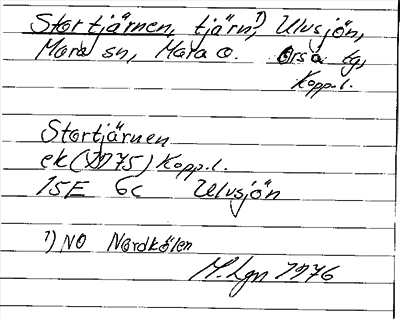 Stortjärnen, tjärn,¹) Ulvsjön,
Mora sn, Mora o. Orsa tg,
Kopp.l.
Stortjärnen
ek (1975) Kopp.l.
15E 6c Ulvsjön
¹) NO Nordkölen
M. Lgn 1976